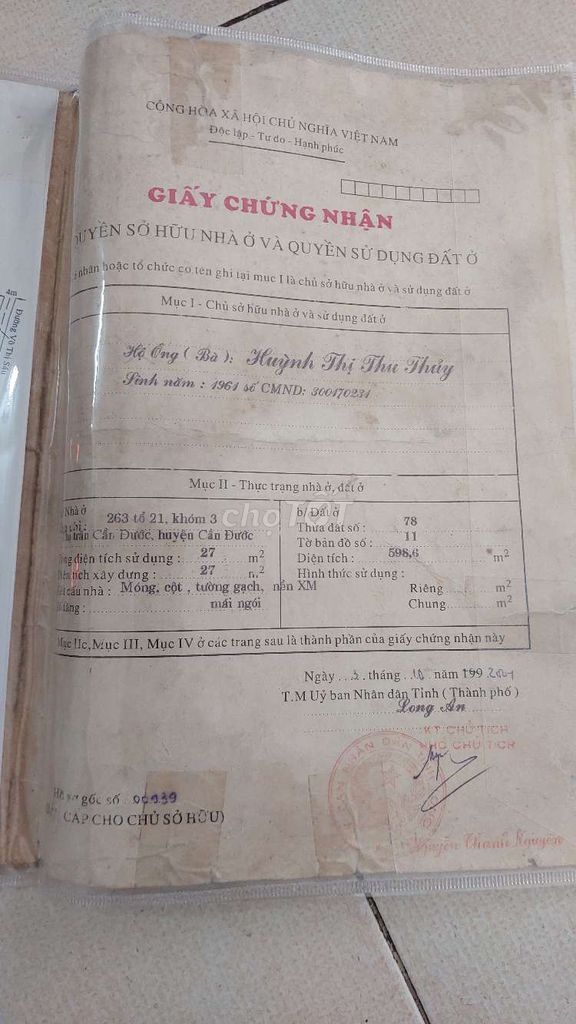 CỘNG HÒA XÃ HỘI CHỦ NGHĨA VIỆT NAM
Độc lập - Tự do - Hạnh phúc
GIẤY CHỨNG NHẬN
QUYỀN SỞ HỮU NHÀ Ở VÀ QUYỀN SỬ DỤNG ĐẤT Ở
nhân hoặc tổ chức có tên ghi tại mục I là chủ sở hữu nhà ở và sử dụng đất ở
Mục I - Chủ sở hữu nhà ở và sử dụng đất ở
Hộ Ông ( Bà ): Huỳnh Thị Thu Thủy
Sinh năm : 1961 số CMND: 300170231
Mục II - Thực trạng nhà ở, đất ở
Nhà ở
263 tổ 21, khóm 3
trấn Cần Đước, huyện Cần Đước
diện tích sử dụng : 27 m2
tích xây dựng : 27 m2
cấu nhà : Móng, cột , tường gạch, nền XM
tầng : mái ngói
b/ Đất ở
Thửa đất số : 78
Tờ bản đồ số : 11
Diện tích : 598,6 m2
Hình thức sử dụng :
Riêng m2
Chung m2
chợTỐT
Mục IIc, Mục III, Mục IV ở các trang sau là thành phần của giấy chứng nhận này
Ngày tháng năm 199 2001
T.M Uỷ ban Nhân dân Tỉnh ( Thành phố )
Long An
KT CHỦ TỊCH
PHÓ CHỦ TỊCH
Nguyễn Thanh Nguyên
gốc số 00939
CẤP CHO CHỦ SỞ HỮU)
Đường Võ Thị Sáu